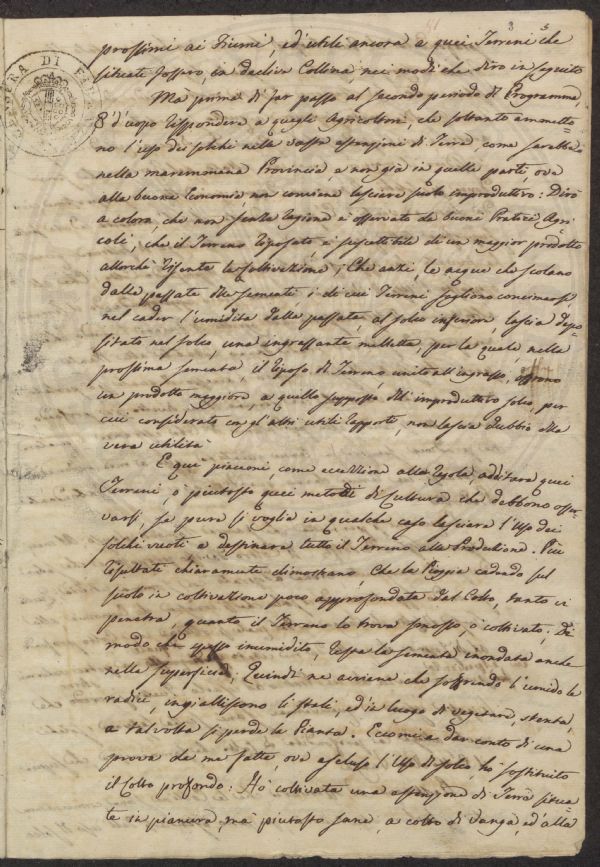 3 3
prossimi ai Fiumi, ed utili ancora a quei Terreni che
situati fossero, in declive Collina nei modi che dirò in seguito
Ma prima di far passo al secondo periodo di Programma
È d'uopo rispondere a quegli Agricoltori, che soltanto ammetto=
no l'uso dei solchi nella vasta estenzione di Terra, come sarebbe
nella maremmana Provincia, e non già in quelle parti, ove
alla buona Economia, non conviene lasciare suolo improduttivo: Dirò
a coloro che non senza ragione è osservato da buoni Pratici Agri=
coli, che il Terreno riposato, è suscettibile di un maggior prodotto
allorchè risente la coltivazione; Che anzi, le acque che scolano
dalle passate alle sementi i di cui Terreni sogliono concimarsi,
nel cader l'umidità dalla passata, al solco inferiore, lascia depo=
sitato nel solco, una ingrassante melletta, per la quale nella
prossima semente, il riposo di Terreno, unito all'ingrasso, offrono
un prodotto maggiore, a quello supposto dell'improduttivo solco, per
cui considerato con gl'altri utili rapporti, non lascia dubbio alla
vera utilità
E quì piacemi, come eccezzione alla regola, additare quei
Terreni, o piuttosto quei metodi di Cultura che debbono osser=
varsi, se pure si voglia in qualche caso lasciare l'uso dei
solchi vuoti e destinare tutto il Terreno alla Produzione. Più
risultati chiaramente dimostrano, che la Pioggia cadendo sul
suolo in coltivazione poco approfondata dal Colto, tanto vi
penetra, quanto il Terreno lo trova smosso, o coltivato, Di
modo che inumidito, resta la semente inondata anche
nella superficie, Quindi ne avviene che soffrendo l'umido le
radici, ingialliscono li steli, ed in luogo di vegetare, stenta,
e talvolta si perde la Pianta. Eccomi a dar conto di una
prova da me fatta ove escluso l'uso di solco, hò sostituito
il Colto profondo: Hò coltivata una estenzione di Terra situa=
ta in pianura, ma piuttosto sana, a colto di Vanga, ed alla